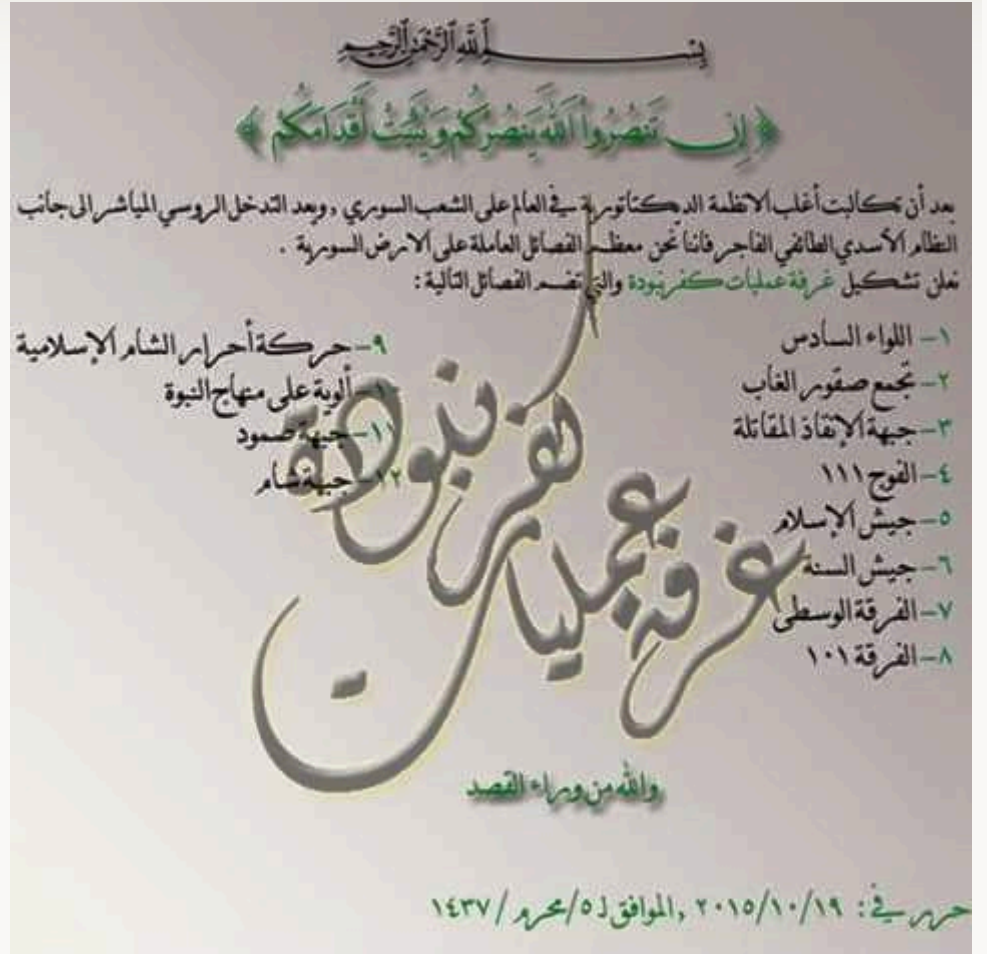 بسم الله الرحمن الرحيم
﴿ إِن تَنصُرُوا اللَّهَ يَنصُرْكُمْ وَيُثَبِّتْ أَقْدَامَكُمْ ﴾
بعد أن تكالبت أغلب الانظمة الدكتاتورية في العالم على الشعب السوري , وبعد التدخل الروسي المباشر الى جانب
النظام الأسدي الطائفي الفاجر فاننا نحن معظم الفصائل العاملة على الارض السورية .
نعلن تشكيل غرفة عمليات كفرنبودة والتي تضم الفصائل التالية :
١- اللواء السادس
٢- تجمع صقور الغاب
٣- جبهة الإنقاذ المقاتلة
٤- الفوج ١١١
٥- جيش الإسلام
٦- جيش السنة
٧- الفرقة الوسطى
٨- الفرقة ١٠١
٩- حركة أحرار الشام الإسلامية
١٠- ألوية على منهاج النبوة
١١- جبهة صمود
١٢- جبهة شام
غرفة عمليات كفرنبودة
والله من وراء القصد
حرر في : ٢٠١٥/١٠/١٩ , الموافق لـ ٥/محرم/١٤٣٧